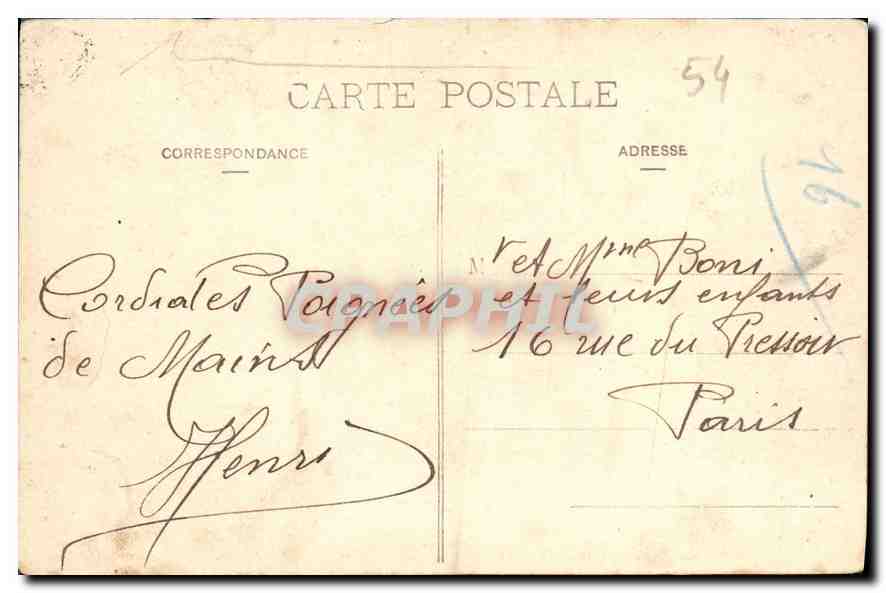 54
CARTE POSTALE
CORRESPONDANCE
ADRESSE
16
Cordiales Poignées
de Mains
Henri
Mr et Mme Boni
et leurs enfants
16 rue du Pressoir
Paris
CPAPHIL